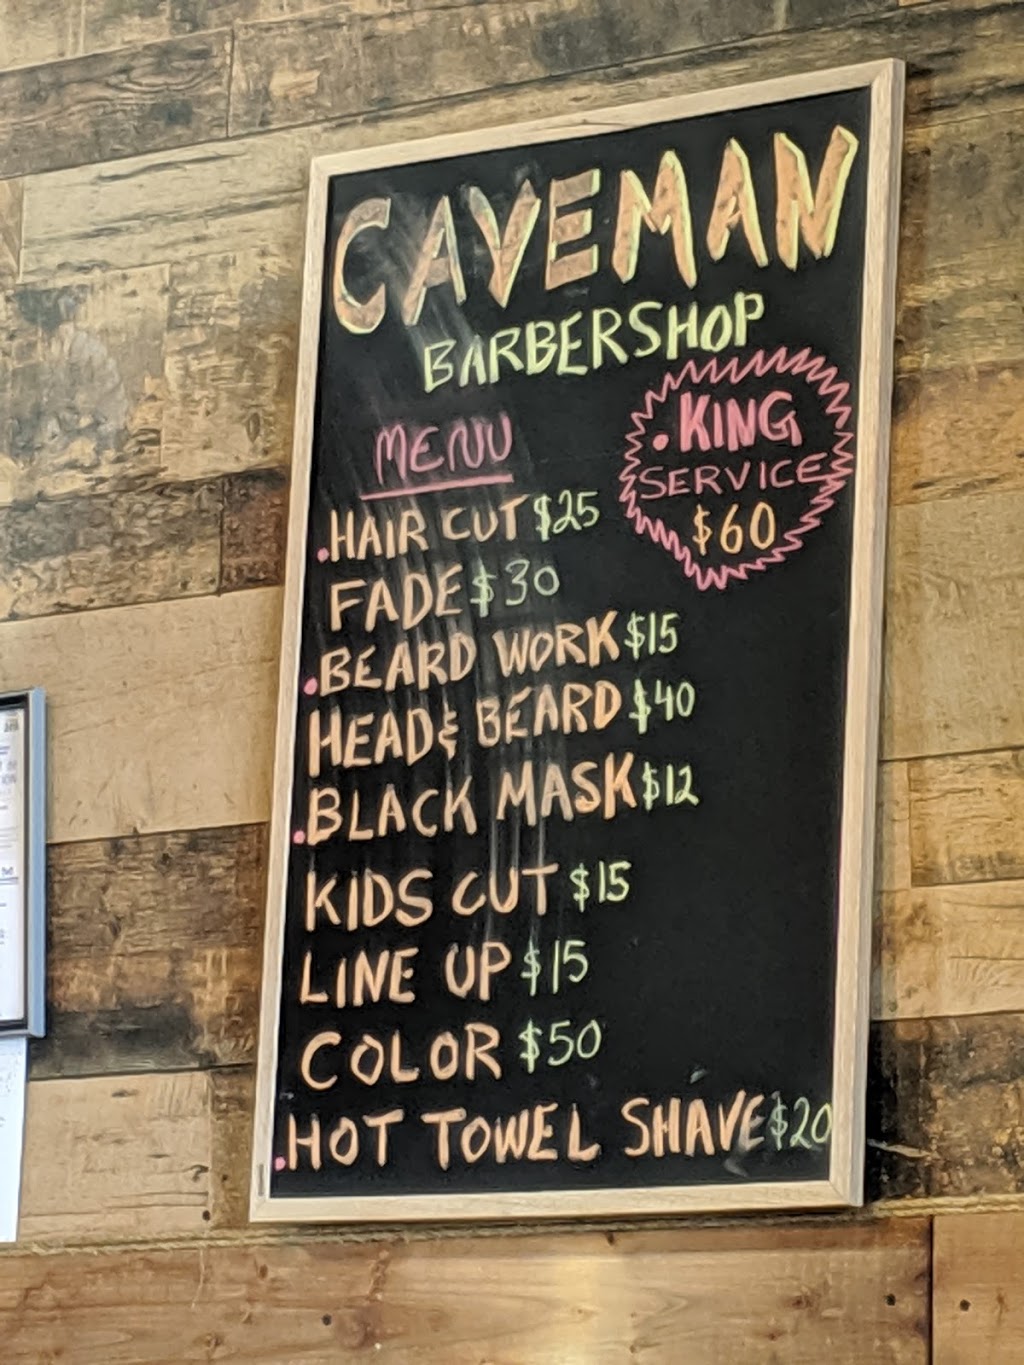 CAVEMAN
BARBERSHOP
MENU
.KING
SERVICE
$60
.HAIR CUT $25
FADE $30
.BEARD WORK $15
HEAD & BEARD $40
.BLACK MASK $12
KIDS CUT $15
LINE UP $15
COLOR $50
.HOT TOWEL SHAVE $20